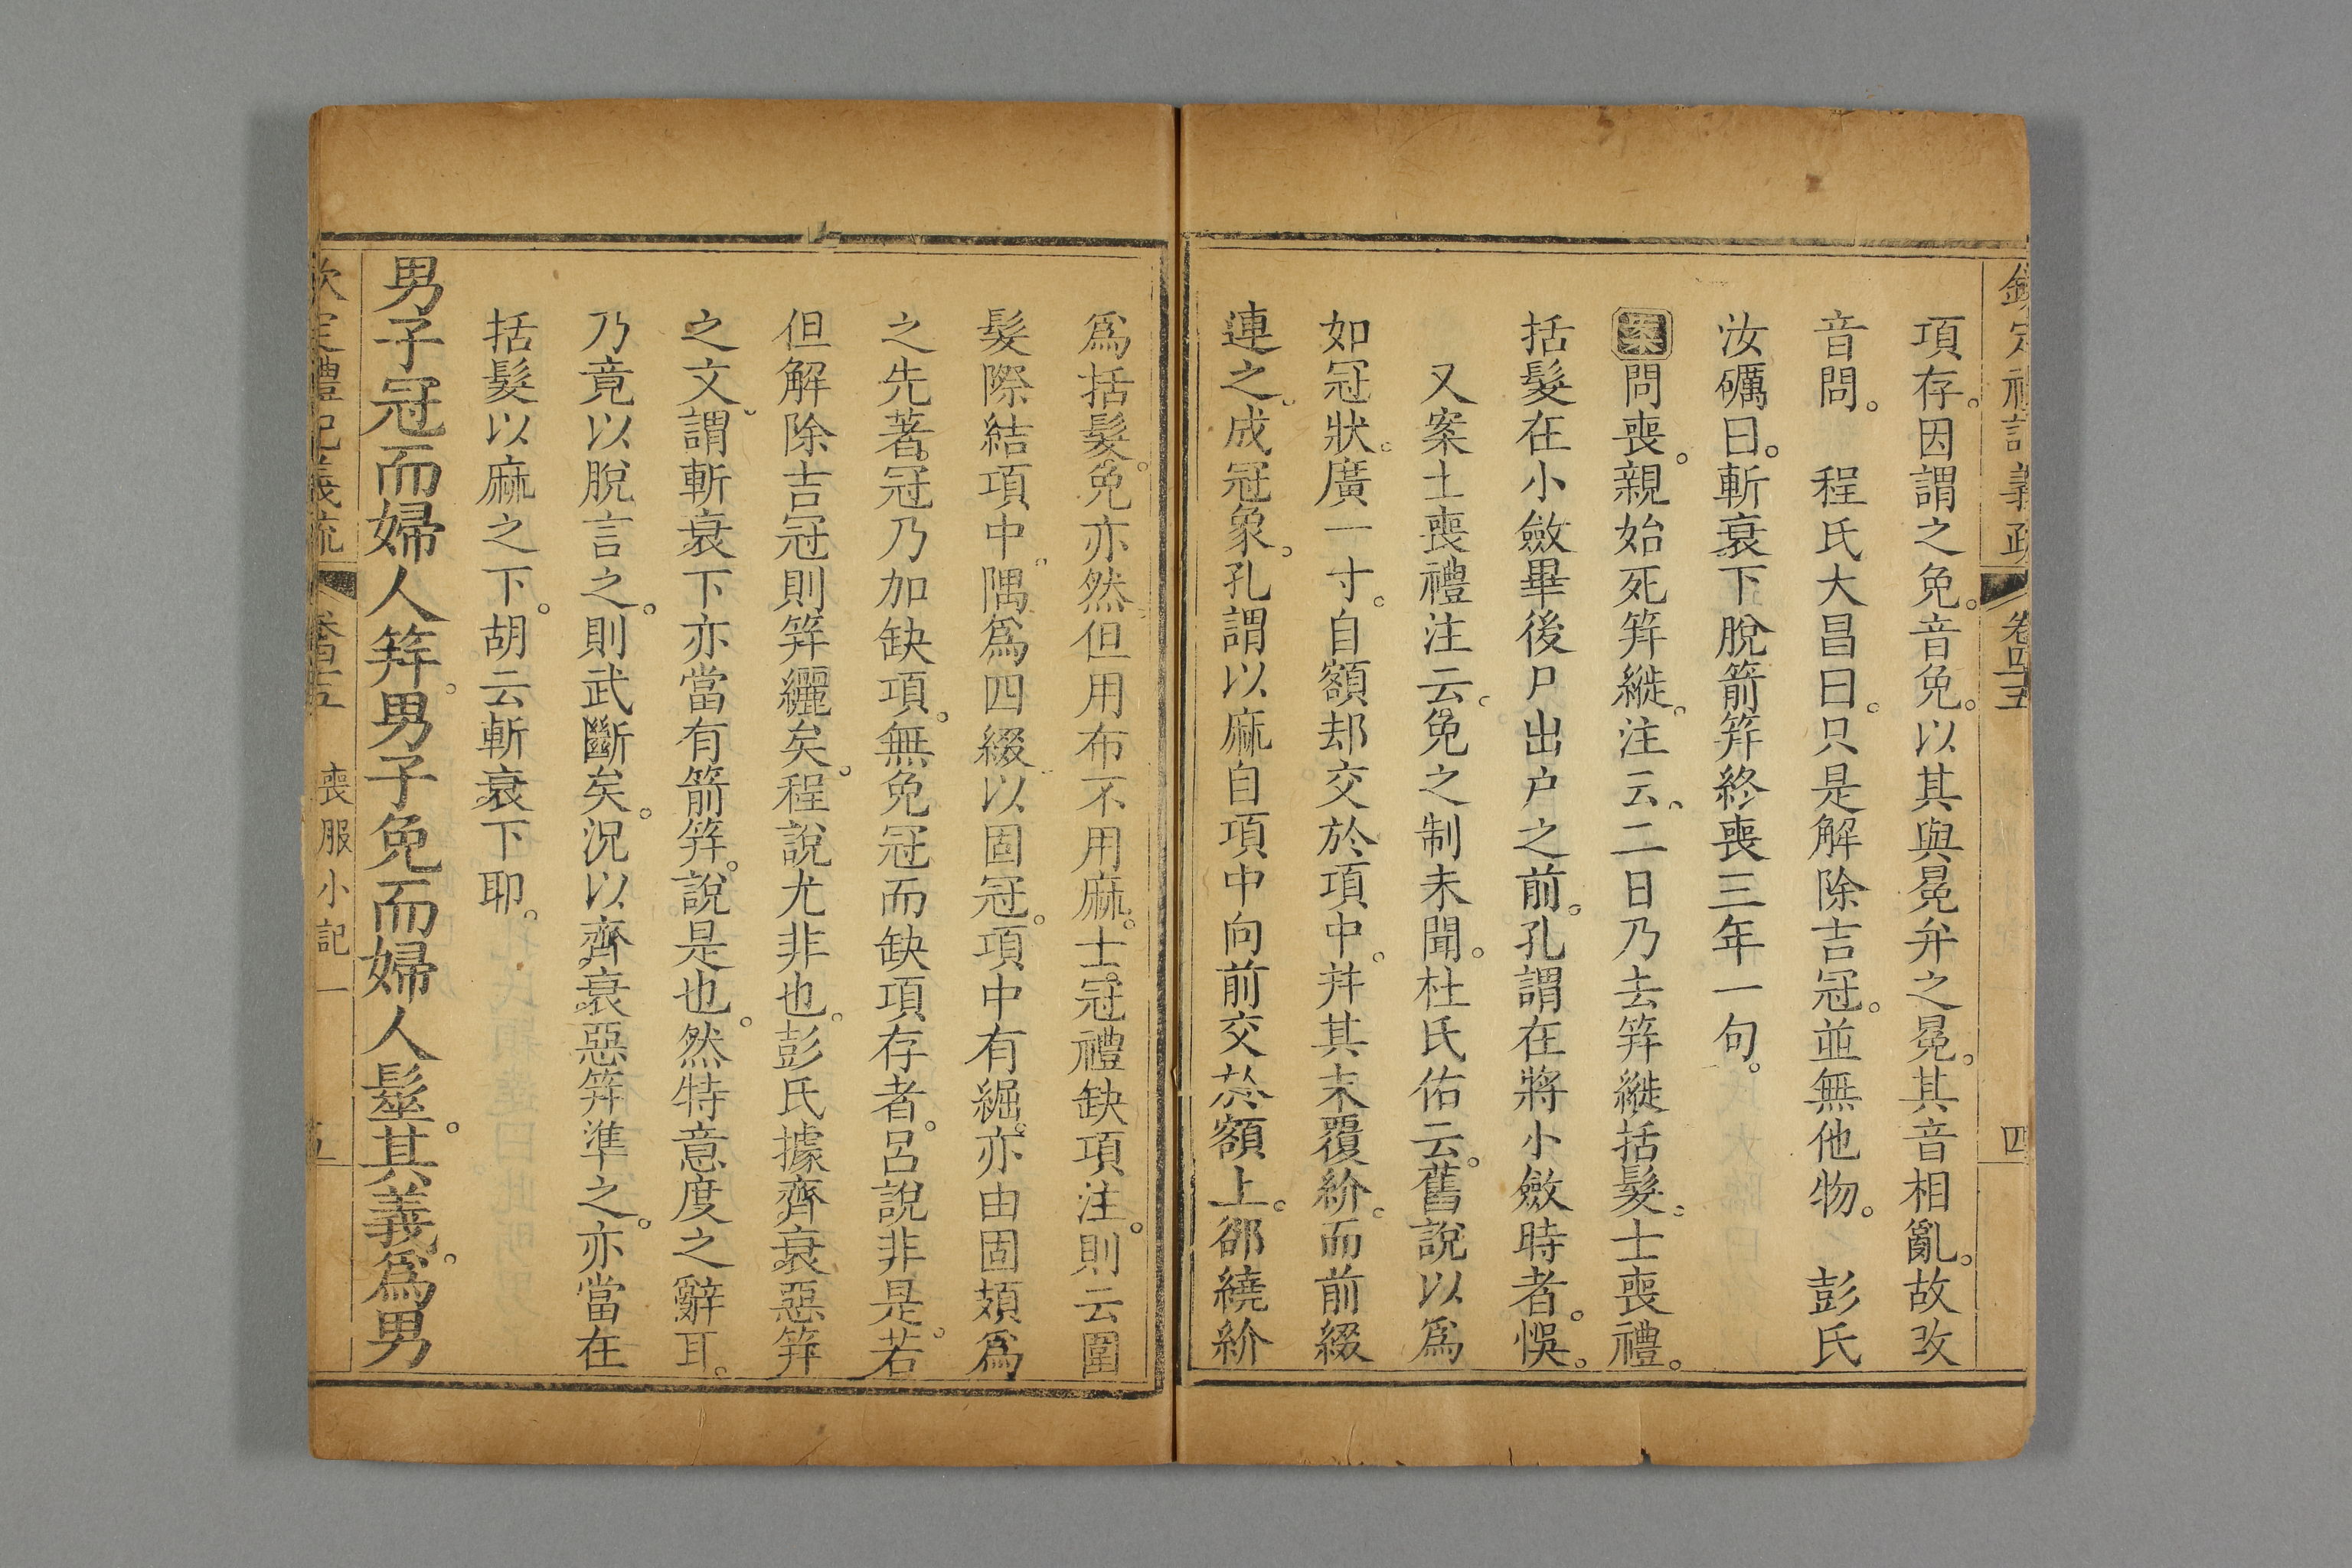 欽定禮記義疏 卷四十五 四
項存。因謂之免。音免。以其與冕弁之冕。其音相亂。故改
音問。 程氏大昌曰。只是解除吉冠。並無他物。 彭氏
汝礪曰。斬衰下脫箭笄終喪三年一句。
案問喪。親始死笄縰。注云。二日乃去笄縰括髮。士喪禮。
括髮在小斂畢後尸出户之前。孔謂在將小斂時者。悞。
又案士喪禮注云。免之制未聞。杜氏佑云。舊說以爲
如冠狀。廣一寸。自額却交於項中。并其末覆紒。而前綴
連之。成冠象。孔謂以麻自項中向前交於額上。郤繞紒
爲括髮。免亦然。但用布不用麻。士冠禮缺項注。則云圍
髮際結項中。隅爲四綴以固冠。項中有䋿。亦由固頍爲
之先著。冠乃加缺項。無免冠而缺項存者。呂說非是。若
但解除吉冠則笄纚矣。程說尤非也。彭氏據齊衰惡笄
之文。謂斬衰下亦當有箭笄。說是也。然特意度之辭耳。
乃竟以脫言之。則武斷矣。況以齊衰惡笄準之。亦當在
括髮以麻之下。胡云斬衰下耶。
男子冠而婦人笄。男子免而婦人髽。其義。爲男
欽定禮記義疏 卷四十五 喪服小記一 五